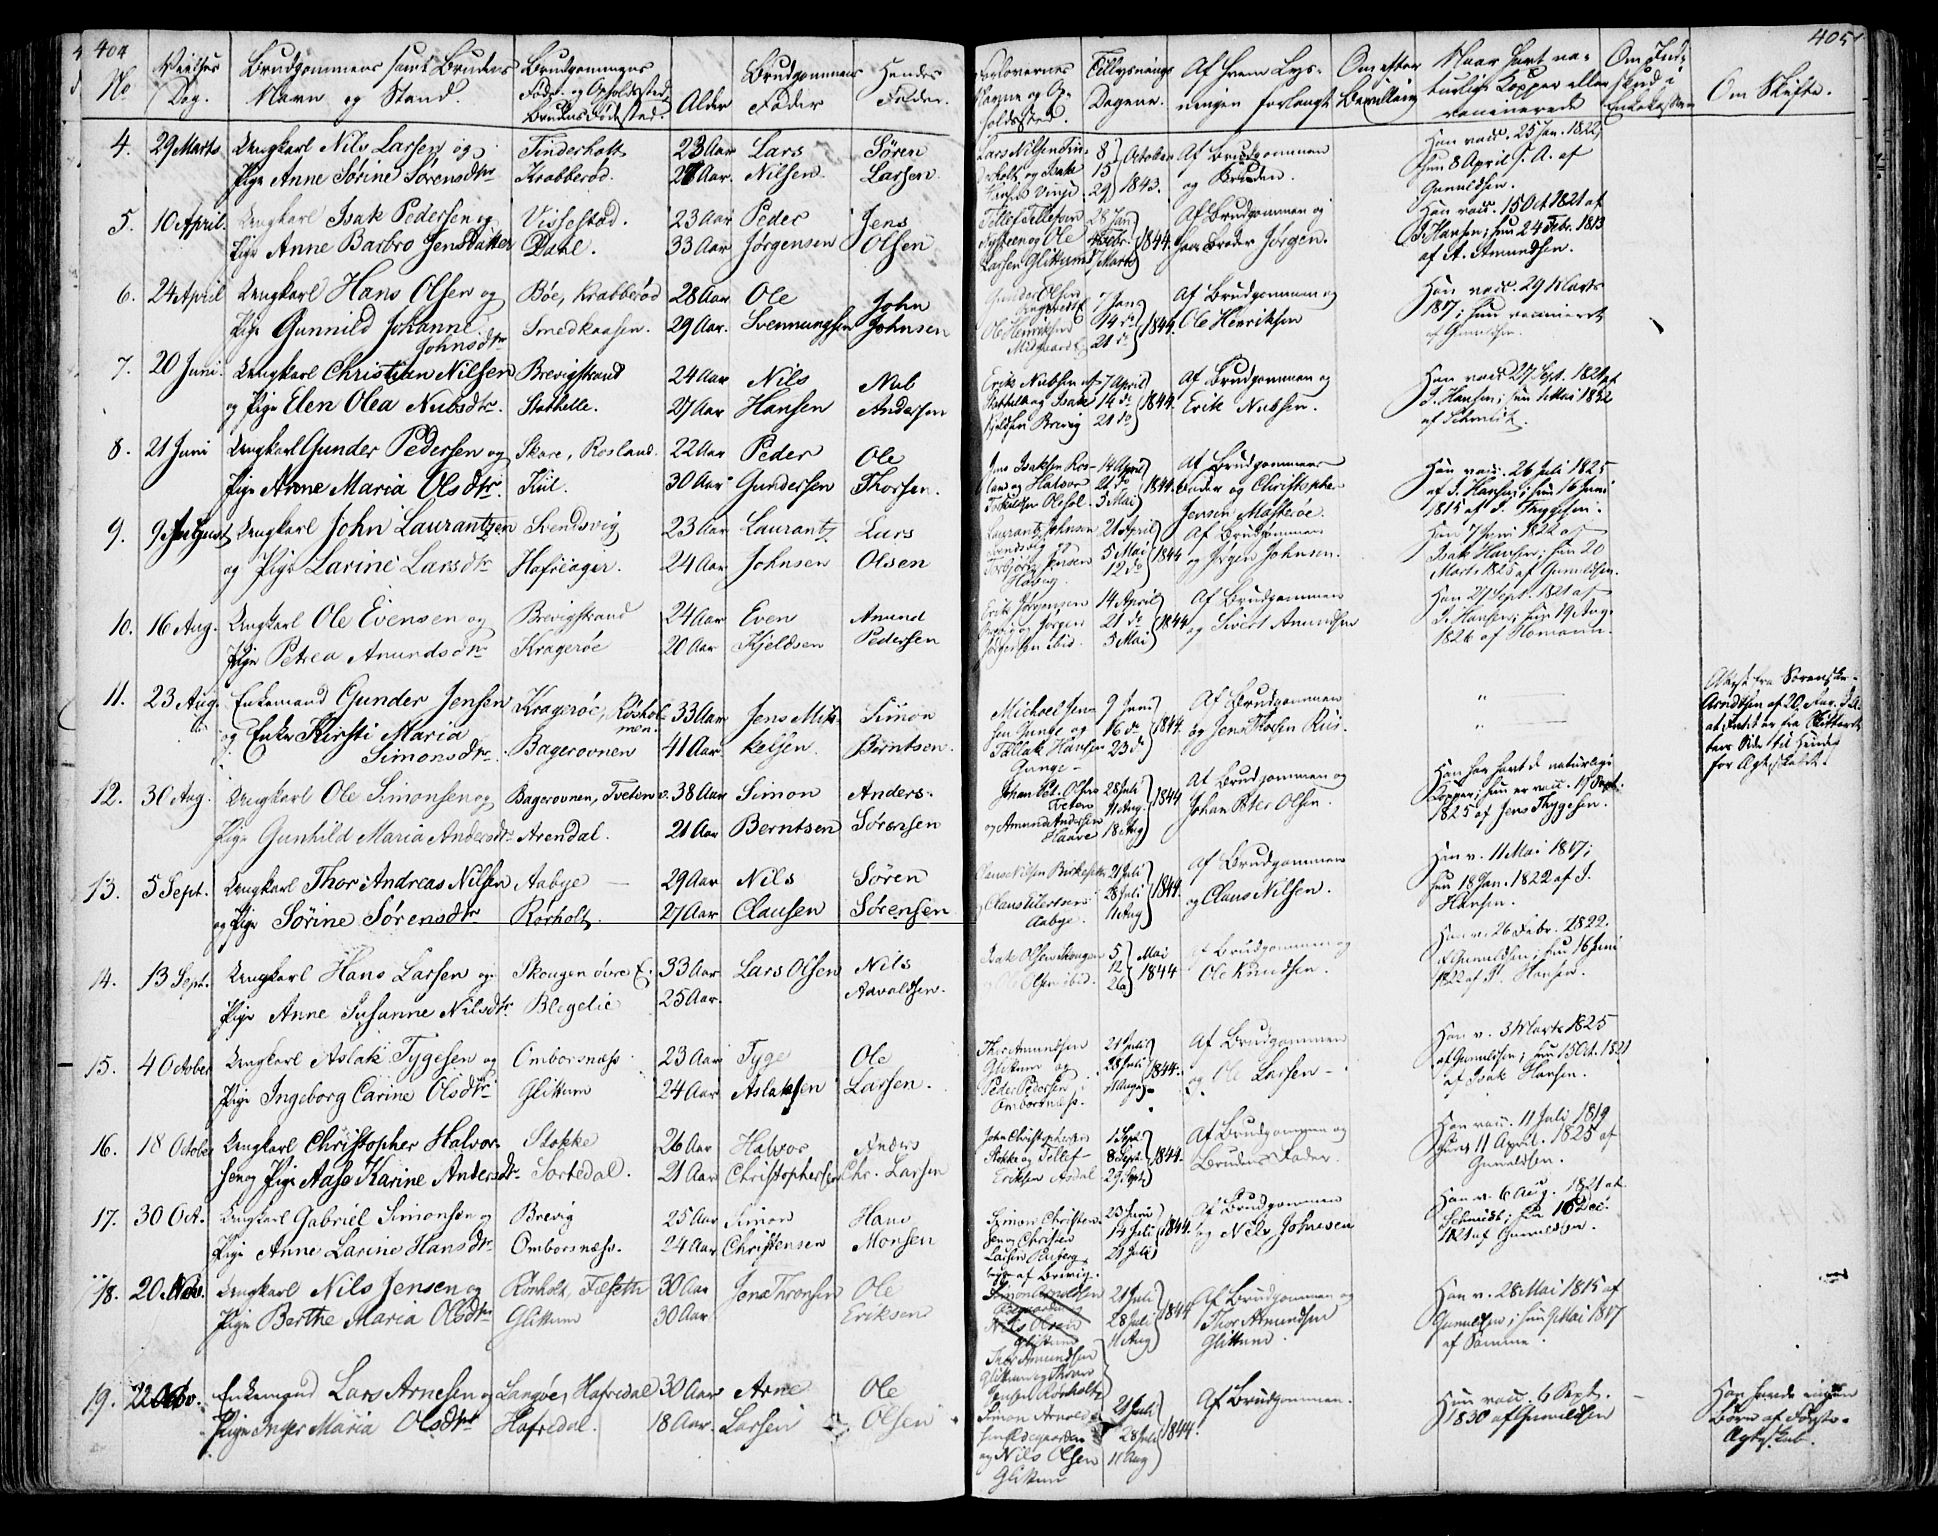 404
No
Vielses
Dag.
Brudgommens samt Brudens
Navn og Stand.
Brudgommens
Føde- og Opholdssted,
Brudens Fødested.
Alder
Brudgommens
Fader
Hendes
Fader.
4. 29 Marts Ungkarl Nils Larsen og Tinderholt 23 Aar Lars Søren
Pige Anne Sørine Sørensdtr Krabberød. 27 Aar. Nilsen. Larsen.
5. 10 April. Ungkarl Isak Pedersen og Vissestad. 23 Aar Peder Jens
Pige Anne Barbro Jensdatter Dahl. 33 Aar Jørgensen Olsen
6. 24 April Ungkarl Hans Olsen og Bøe, Krabberød 28 Aar Ole John
Pige Gunnild Johanne Smedkaasen. 29 Aar. Svennungsen Johnsen
Johnsdtr
7. 20 Juni. Ungkarl Christian Nilsen Brevigstrand 24 Aar Nils Nub
og Pige Elen Olea Nubsdtr. Stathelle. 27 Aar Hansen Andersen
8. 21 Juni Ungkarl Gunder Pedersen og Skare, Rosland. 22 Aar Peder Ole
Pige Anne Maria Olsdtr. Kiil. 30 Aar Gundersen Thorsen.
9. 9 August Ungkarl John Laurantzen Svendsvig 23 Aar Laurantz Lars
og Pige Larine Larsdtr Hafsager. 24 Aar Johnsen Olsen
10. 16 Aug. Ungkarl Ole Evensen og Brevigstrand 24 Aar Even Amund
Pige Petrea Amundsdtr Kragerøe 20 Aar Kjeldsen Pedersen
11. 23 Aug. Enkemand Gunder Jensen Kragerøe, Røshol- 33 Aar Jens Mik- Simon
men
og Enke Kirsti Maria Bagerovnen 41 Aar kelsen. Berntsen.
Simonsdtr.
12. 30 Aug. Ungkarl Ole Simonsen og Bagerovnen, Tveten 38 Aar Simon Anders
Pige Gunhild Maria Andersdtr Arendal. 21 Aar Berntsen Sørensen
13. 5 Sept. Ungkarl Thor Andreas Nilsen Aabye 29 Aar Nils Søren
og Pige Sörine Sørensdtr Rørholt. 27 Aar Clausen Sørensen
14. 13 Sept. Ungkarl Hans Larsen og Skougen øvre E. 33 Aar Lars Olsen Nils
Pige Anne Susanne Nilsdtr Blegelie 25 Aar. Aavaldsen.
15. 4 October Ungkarl Aslak Tygesen og Omborsnæss 23 Aar Tyge Ole
Pige Ingeborg Carine Olsdtr Glittum 24 Aar Aslaksen Larsen.
16. 18 October Ungkarl Christopher Halvor- Stokke 26 Aar Halvor Anders
sen og Pige Aase Karine Andersdtr. Sortedal. 21 Aar Christophersen Chr. Larsen
17. 30 Oct. Ungkarl Gabriel Simonsen og Brevig 25 Aar Simon Hans
Pige Anne Larine Hansdtr Omborsnæss. 24 Aar Christensen Monsen
18. 20 Nov. Ungkarl Nils Jensen og Rørholt, Fæseth 30 Aar Jens Thronsen Ole
Pige Berthe Maria Olsdtr Glittum 30 Aar. Eriksen
19. 22 Nov. Enkemand Lars Arnesen og Langøe, Hafredal 30 Aar Arne Ole
Pige Inger Maria Olsdtr Hafredal. 18 Aar. Larsen Olsen
405
Forlovernes
Navne og Op-
holdssted.
Tillysnings
Dagene.
Af hvem Lys-
ningen forlangt
Om efter
Bevilling
Naar havt na-
turlige Kopper eller
vaccinerede
Om Ind-
skud i
Enkekassen
Om Skifte.
Lars Nilsen Tin- 8 October Af Brudgommen Han vacc. 25 Jan. 1822,
derholt og Isak 15 og Bruden. hun 8 April s. A. af
29 1843. Gunuldsen.
Tellef Tellefsen 28 Jan Af Brudgommen og Han vacc. 15 Oct 1821 af
og Ole 1844. hans Broder Jørgen. I. Hansen; hun 24 Febr. 1813
Larsen Glittum Marts af A. Amundsen.
7 Jan Af Brudgommen og Han vacc. 29 Marts
Ole Henriksen 14 de 1844. Ole Henriksen 1817; hun vaccineret
21 de af Gunuldsen.
Erik Nubsen af 7 April Af Brudgommen og Han vacc. 27 Sept. 1821 af
Stathelle og Isak 14 de 1844. Erik Nubsen. I. Hansen; hun 1 Mai 1832
Kjeldsen Brevig 21 de af Schmidt.
Jens Isaksen Ros- 14 April Af Brudgommens Han vacc. 26 Juli 1825
land og Halvor 21 de 1844. Fader og Christopher af I. Hansen; hun 16 Juni
Torkildsen 5 Mai Jensen 1815 af J. Thygesen.
Laurantz Johnsen 21 April Af Brudgommen Han 7 Juni 1822 af
Svendsvig og 5 Mai 1844 og Jørgen Johnsen. Isak Hansen; hun 20
Torbjørn Jensen 12 de Marts 1825 af Gunuldsen.
Erik Jørgensen 14 April Af Brudgommen Han 27 Sept. 1821 af
og Jørgen 21 de 1844 og Sivert Amundsen I. Hansen; hun 19 Aug.
Jørgensen ibid. 5 Mai 1826 af Homann.
Michael Jen- 9 Juni Af Brudgommen "
sen Gunge og 16 de 1844. og Jens Thorsen Riis. "
Tallak Hansen 23 de
Gunge
Attest fra Sorenskr.
Arndtsen af 20 Aug.
at Intet er fra Skifterets
Side til Hinder
for Ægteskabet.
Johan Pet. Olsen 28 Juli Af Brudgommen og Han har havt de naturlige
Tveten 11 Aug. 1844 Johan Peter Olsen. Kopper; hun er vacc. 19 Sept.
og Amund Andersen 18 Aug 1825 af Jens Thygesen.
Haave
Claus Nilsen 21 Juli Af Brudgommen Han v. 11 Mai 1817;
28 Juli 1844. og Claus Nilsen. hun 18 Jan. 1822 af I.
Aabye. 11 Aug Hansen.
Isak Olsen Skougen 5 Mai Af Brudgommen og Han v. 26 Febr. 1822.
12 1844 Ole Knudsen. af Gunuldsen; hun 16 Juni
Ole Olsen ibid. 26 1822 af I. Hansen.
Thor Amundsen 21 Juli Af Brudgommen Han v. 3 Marts 1825
Glittum og 28 Juli 1844. og Ole Larsen af Gunuldsen; hun 15 Oct. 1821
Peder Pedersen 11 Aug af Isak Hansen.
Ombordsnæss.
John Christophersen 1 Sept. Af Brudgommen og Han vacc. 11 Juli 1819
Stokke og Tellef 8 Sept. 1844. Brudens Fader. hun 11 April. 1825 af
Eriksen Asdal 29 Sept. Gunuldsen.
Simon Christen- 23 Juni Af Brudgommen Han v. 6 Aug. 1821 af
sen og Christen 14 Juli 1844. og Nils Johnsen Schmidt; hun 16 Dec.
Larsen 21 Juli 1821 af Gunuldsen.
begge af Brevig.
Simon Arnoldsen 21 Juli Af Brudgommen og Han v. 28 Mai 1815 af
Ødegaarden og 28 Juli 1844 Thor Amundsen Gunuldsen; hun 9 Mai 1817
Nils Olsen 11 Aug Glittum. af Somme.
Glittum
Thor Amundsen
Glittum og Thron
Jensen Rørholt
Simon Arnold- 21 Juli Af Brudgommen. Hun vacc. 6 Sept. Han havde ingen
sen Ødegaarden 28 Juli 1844. 1830 af Gunuldsen Børn af første
og Nils Olsen 11 Aug Ægteskab.
Glittum